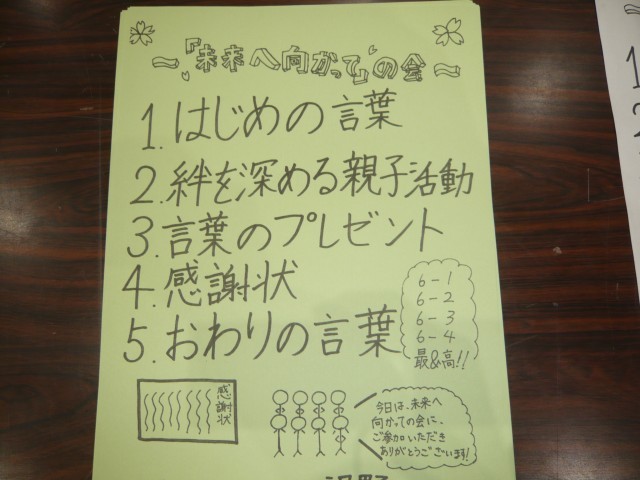 ～『未来へ向かって』の会～
1. はじめの言葉
2. 絆を深める親子活動
3. 言葉のプレゼント
4. 感謝状
5. おわりの言葉
6-1
6-2
6-3
6-4
最&高!!
感謝状
今日は、未来へ
向かっての会に、
ご参加いただき
ありがとうございます!